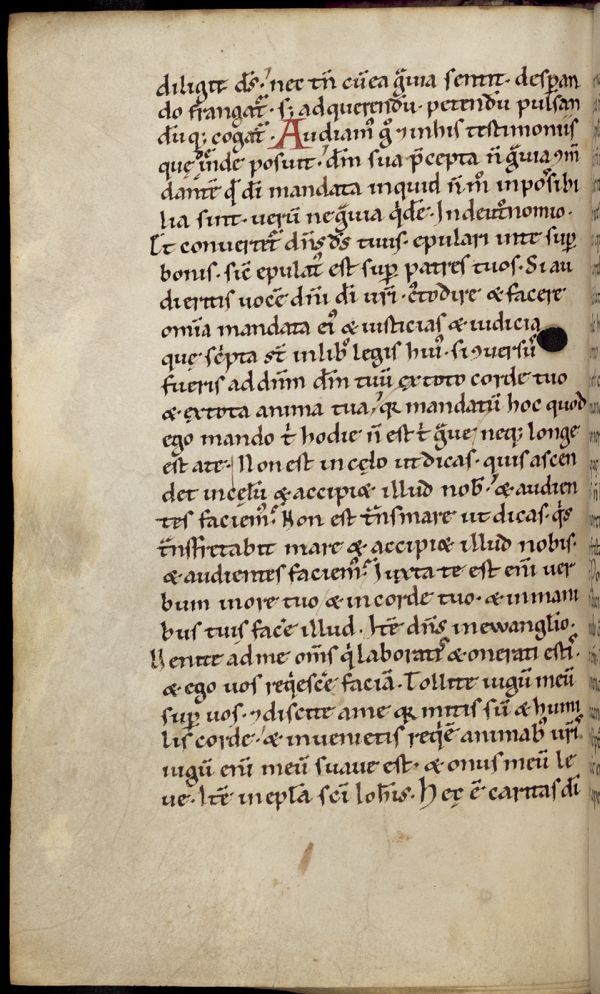 diligit d̄s. nec tn̄ cū ea grauia sentit. desperan
do frangat᷑. s; ad querendū. petendū pulsan
dūq; cogat᷑. Audiam᷒ gͦ ⁊ in his testimoniis
quę inde posuit. dn̄m sua p̄cepta n̄ grauia ⁊m̄
dantē qd̄ di mandata inquid n̄ m̊ inpossibi
lia sint. uerū ne grauia qͥdē. In deut᷑onomio.
Et conuertet᷑ dn̄s d̄s tuus. epulari in te sup̱
bonis. sic̄ epulat᷒ est sup̱ patres tuos. Si au
dieritis uocē dn̄i dī uri. c᷒todire & facere
omīa mandata ei᷒ & iusticias & iudicia
quę sc̄pta st̄ in lib᷒ legis hui᷒. si ⁊uersu᷒
fueris ad dn̄m dm̄ tuū ex toto corde tuo
& ex tota anima tua. q̄ mandatū hoc quod
ego mando t̄ hodie n̄ est t̄ grauē neq; longe
est a te. Non est in cęlo ut dicas. quis ascen
det in cęlū & accipi& illud nob̄. & audien
tes faciem᷒. Non est t̄ns mare ut dicas. qͥs
t̄nsfretabit mare & accipi& illud nobis.
& audientes faciem᷒. Iuxta te est enī uer
bum in ore tuo & in corde tuo. & in mani
bus tuis facē illud. Itē dn̄s in ewanglio.
Uenite ad me om̄s qͥ laborati᷒ & onerati esti᷒.
& ego uos reqͥescē faciā. Tollite iugū meū
sup̱ uos. ⁊ discite a me q̄ mitis sū & humi
lis corde. & inuenietis reqͥē animab᷒ uris.
iugū enī meū suaue est. & onus meū le
ue. Itē in epl̄a scī Ioh̄is. Hęc ē caritas dī